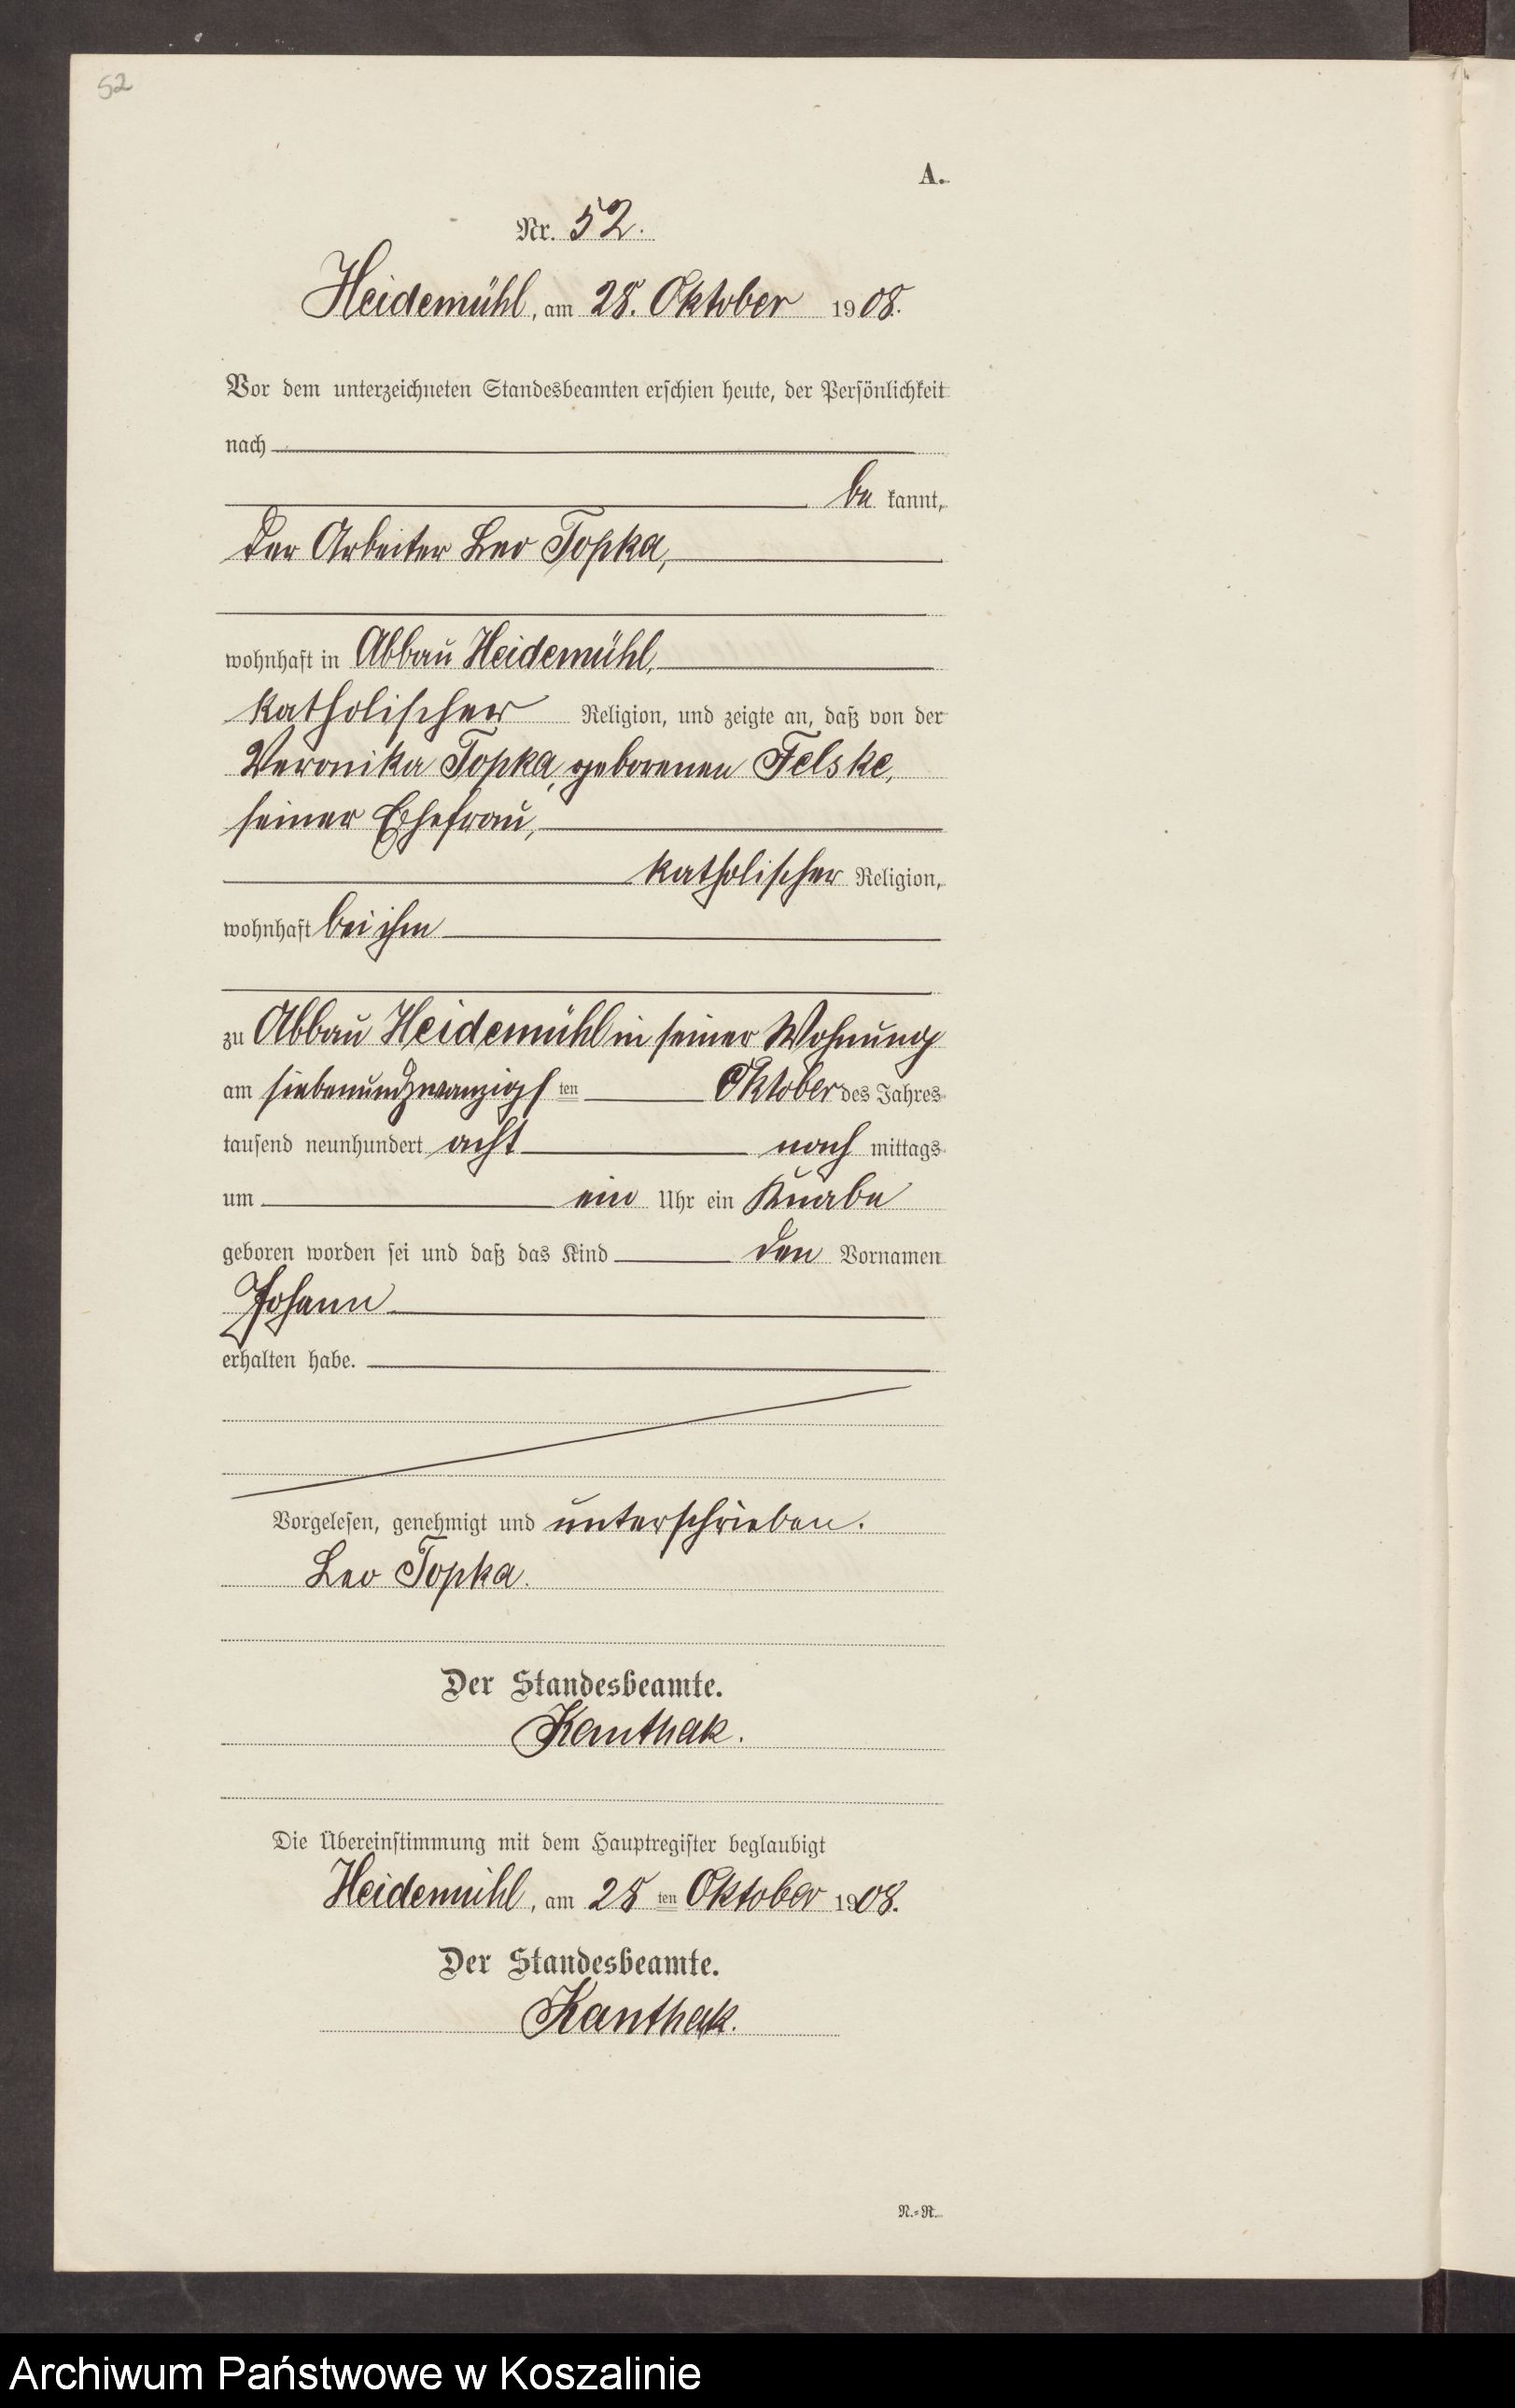 52
A.
Nr. 52.
Heidemühl, am 28. Oktober 1908.
Vor dem unterzeichneten Standesbeamten erschien heute, der Persönlichkeit
nach
be kannt,
der Arbeiter Leo Topka,
wohnhaft in Abbau Heidemühl,
katholischer Religion, und zeigte an, daß von der
Veronika Topka, geborenen Felske,
seiner Ehefrau,
katholischer Religion,
wohnhaft bei ihm
zu Abbau Heidemühl in seiner Wohnung
am siebenundzwanzigsten Oktober des Jahres
tausend neunhundert acht nach mittags
um ein Uhr ein Knabe
geboren worden sei und daß das Kind den Vornamen
Johann
erhalten habe.
Vorgelesen, genehmigt und unterschrieben.
Leo Topka.
Der Standesbeamte.
Kanthak.
Die Übereinstimmung mit dem Hauptregister beglaubigt
Heidemühl, am 28 ten Oktober 1908.
Der Standesbeamte.
Kanthak.
N.=R.
Archiwum Państwowe w Koszalinie